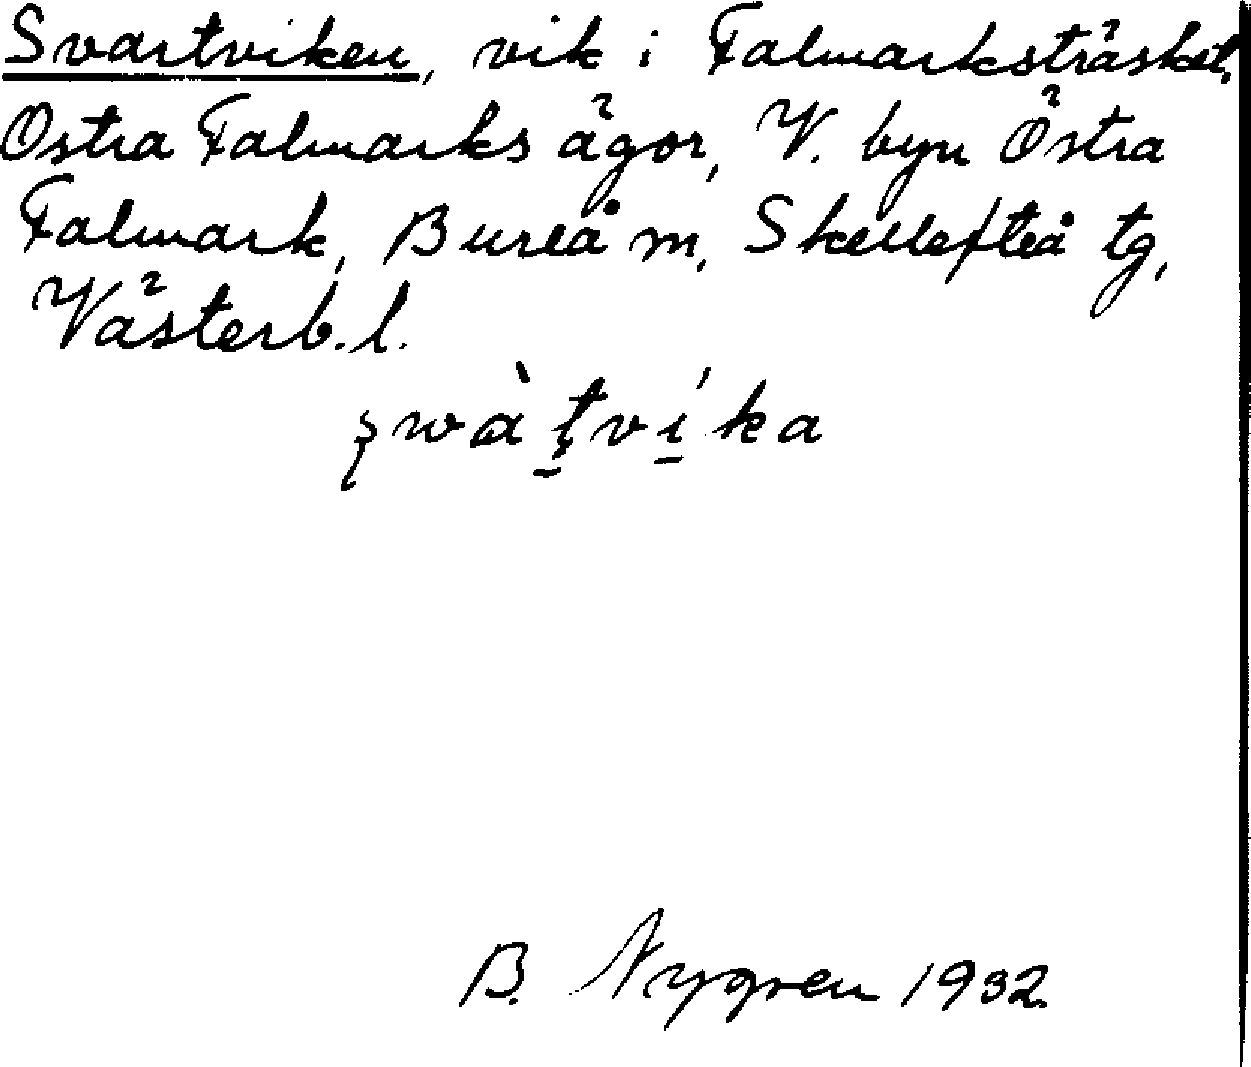 Svartviken, vik i Falmarksträsket,
Östra Falmarks ägor, V. byn Östra
Falmark, Bureå m, Skellefteå tg,
Västerb. l.
swàt̠ví̠ka
B. Nygren 1932.